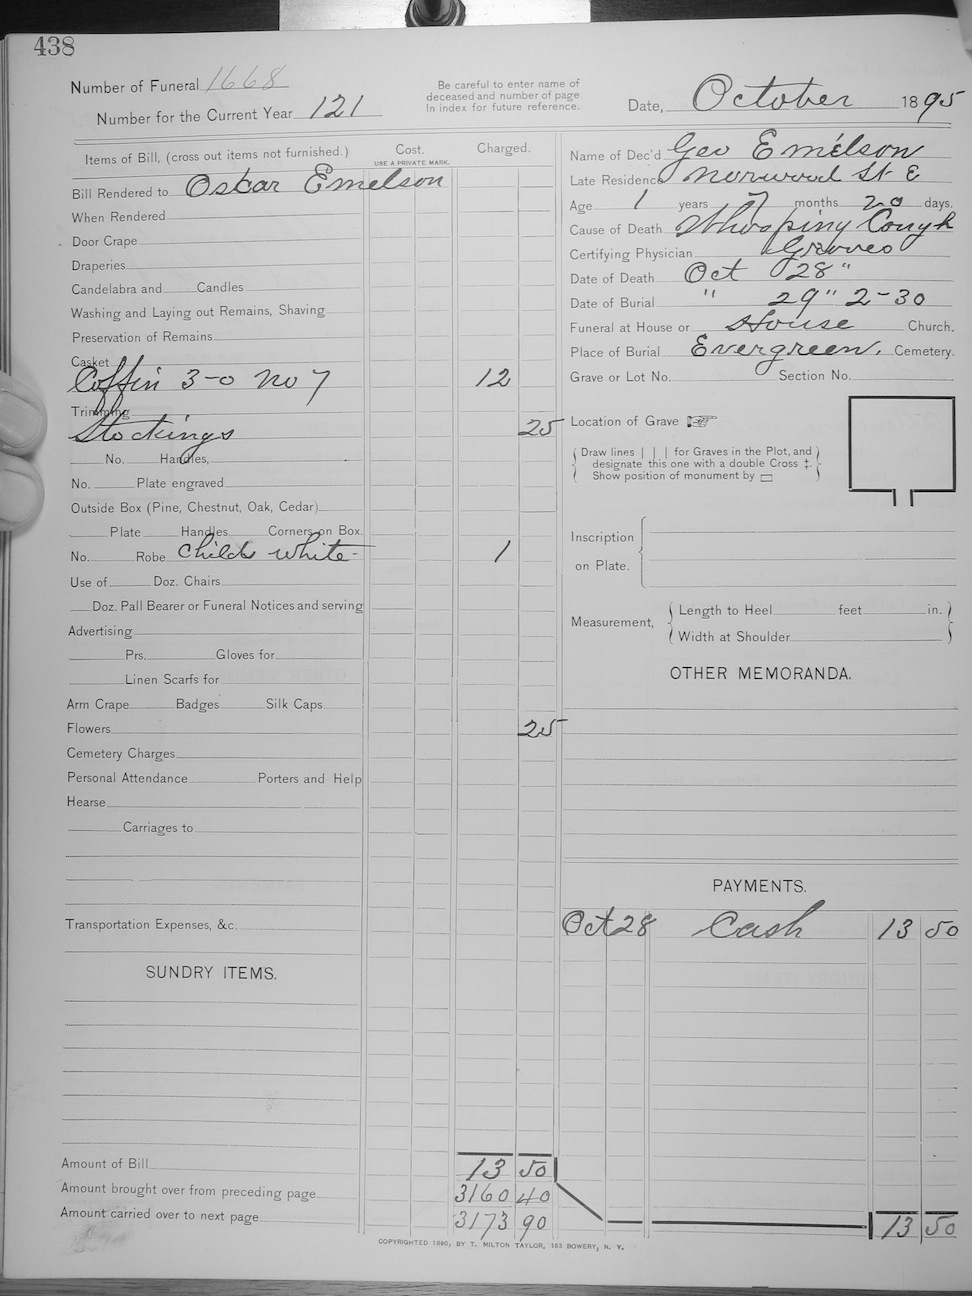 438
Number of Funeral 1668
Number for the Current Year 121
Be careful to enter name of
deceased and number of page
in index for future reference.
Date, October 1895
Items of Bill, (cross out items not furnished.) Cost. Charged.
USE A PRIVATE MARK.
Bill Rendered to Oskar Emelson
When Rendered
Door Crape
Draperies
Candelabra and Candles
Washing and Laying out Remains, Shaving
Preservation of Remains
Casket
Coffin 3-0 No 7 12
Trimming
Stockings 25
No. Handles,
No. Plate engraved
Outside Box (Pine, Chestnut, Oak, Cedar)
Plate Handles Corners on Box.
No. Robe Childs white 1
Use of Doz. Chairs
Doz. Pall Bearer or Funeral Notices and serving
Advertising
Prs. Gloves for
Linen Scarfs for
Arm Crape Badges Silk Caps
Flowers 25
Cemetery Charges
Personal Attendance Porters and Help
Hearse
Carriages to
Transportation Expenses, &c.
SUNDRY ITEMS.
Amount of Bill 13 50
Amount brought over from preceding page 3160 40
Amount carried over to next page 3173 90
Name of Dec'd Geo Emelson
Late Residence Norwood St E
Age 1 years 7 months 20 days.
Cause of Death Whooping Cough
Certifying Physician Groves
Date of Death Oct 28"
Date of Burial " 29" 2-30
Funeral at House or House Church.
Place of Burial Evergreen. Cemetery.
Grave or Lot No. Section No.
Location of Grave
Draw lines | | | for Graves in the Plot, and
designate this one with a double Cross ‡.
Show position of monument by ▭
Inscription
on Plate.
Measurement, Length to Heel feet in.
Width at Shoulder
OTHER MEMORANDA.
PAYMENTS.
Oct 28 Cash 13 50
13 50
COPYRIGHTED 1890, BY T. MILTON TAYLOR, 163 BOWERY, N. Y.